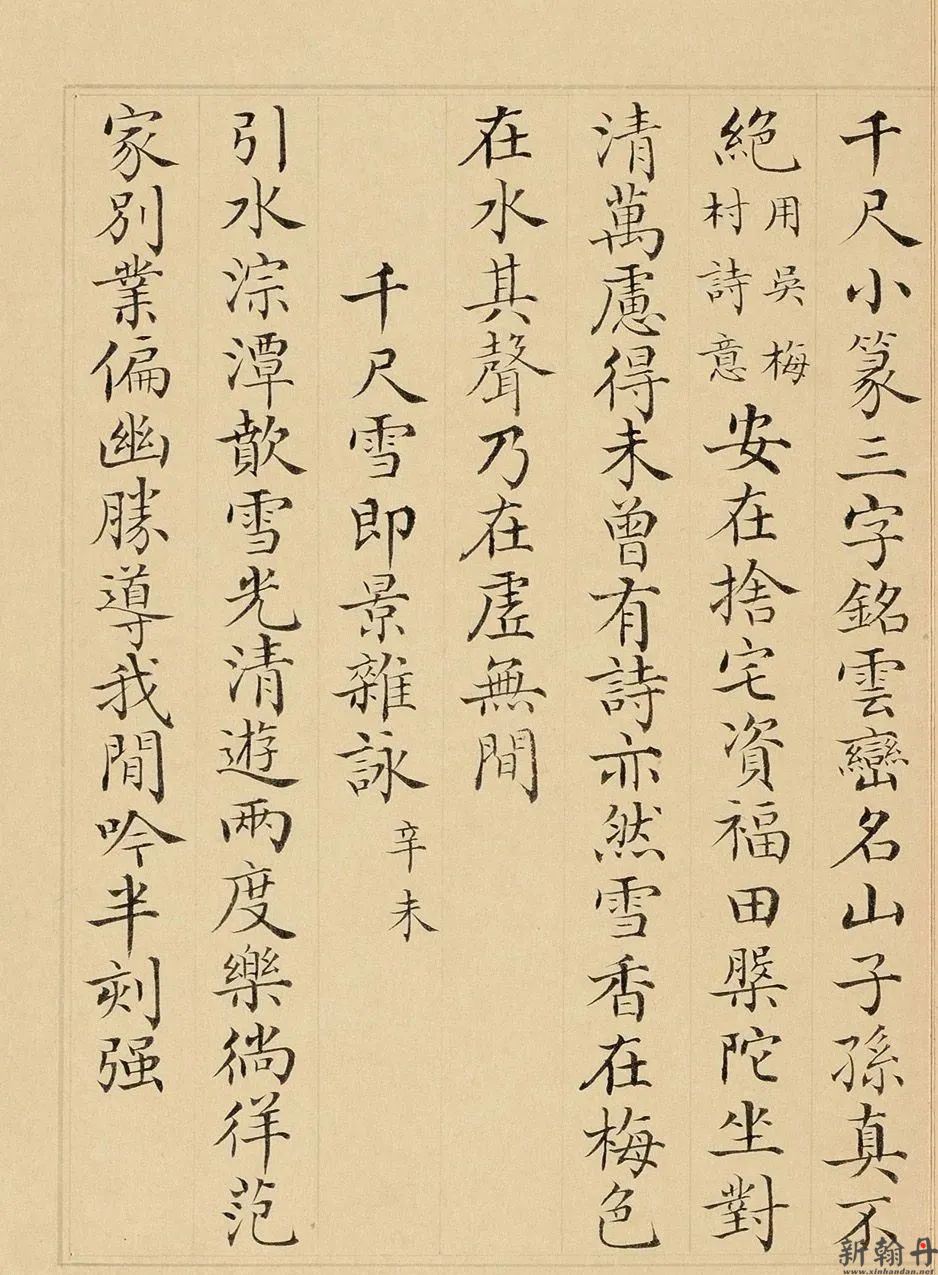 千尺小篆三字銘雲巒名山子孫真不
絕用吳梅村詩意安在捨宅資福田槃陀坐對
清萬慮得未曾有詩亦然雪香在梅色
在水其聲乃在虛無間
千尺雪即景雜詠辛未
引水淙潭歕雪光清遊兩度樂徜徉范
家別業偏幽勝導我閒吟半刻强
新翰丹
www.xinhandan.net